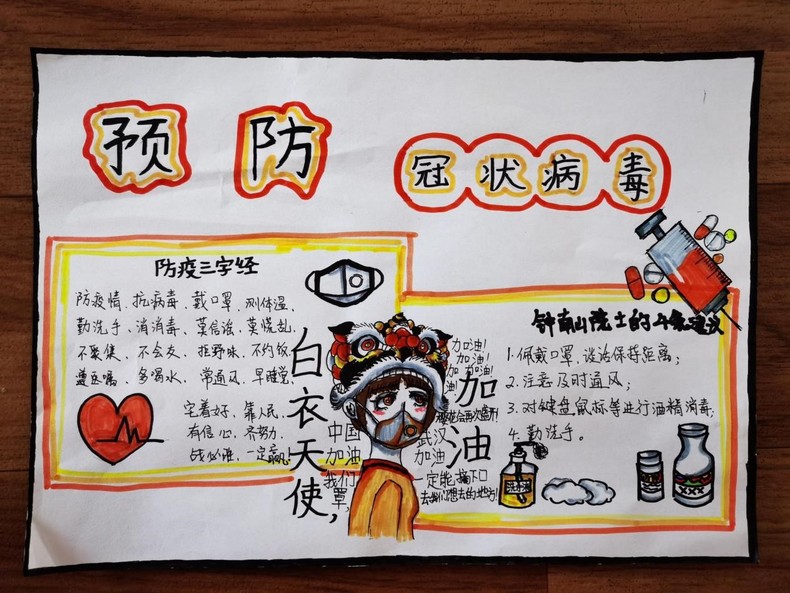 预防
冠状病毒
防疫三字经
防疫情、抗病毒、戴口罩、测体温、
勤洗手、消消毒、莫信谣、莫慌乱、
不聚集、不会友、拒野味、不约饭、
遵医嘱、多喝水、常通风、早睡觉、
宅着好、靠人民、
有信心、齐努力、
战必准、一定赢!
白衣天使,
加油
加油!
加油!
加油!
中国
加油
我们
武汉
加油
一定能摘下口
罩,
去我们想去的地方!
钟南山院士的4条建议
1.佩戴口罩,谈话保持距离;
2.注意及时通风;
3.对键盘鼠标等进行酒精消毒;
4.勤洗手。
洗手液